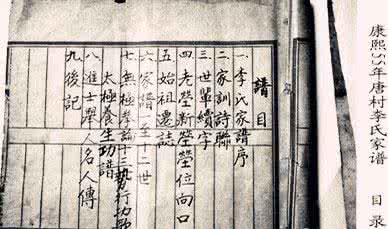 康熙55年唐村李氏家谱 目录
譜目
一李氏家譜序
二家訓詩聯
三世輩續字
四老塋新塋塋位向口
五始祖遷誌
六家譜一至十二世
七無極論十三勢行功歌
太極養生功譜
八進士舉人名人傳
九後記